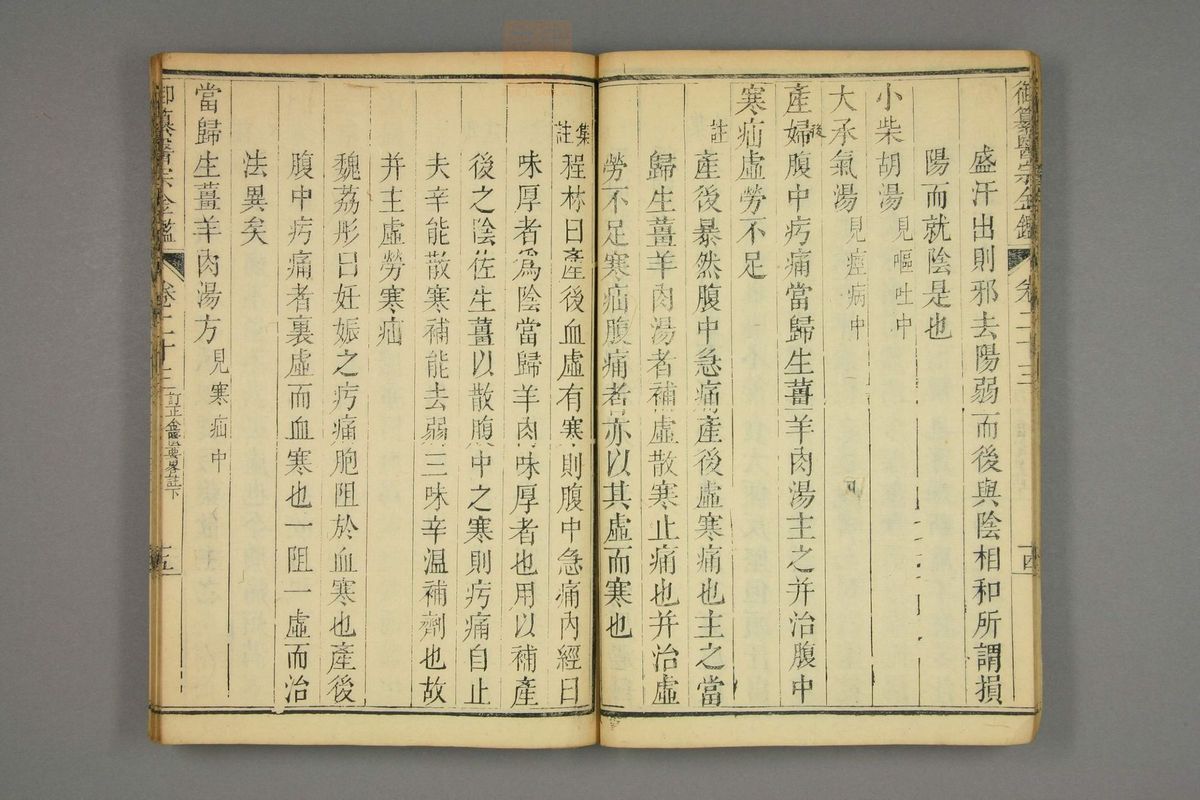 御纂醫宗金鑑 卷二十三 四
盛汗出則邪去陽弱而後與陰相和所謂損
陽而就陰是也
小柴胡湯見嘔吐中
大承氣湯見痙病中
產婦後腹中㽲痛當歸生薑羊肉湯主之并治腹中
寒疝虛勞不足
註 產後暴然腹中急痛產後虛寒痛也主之當
歸生薑羊肉湯者補虛散寒止痛也并治虛
勞不足寒疝腹痛者亦以其虛而寒也
集註 程林曰產後血虛有寒則腹中急痛內經曰
味厚者爲陰當歸羊肉味厚者也用以補產
後之陰佐生薑以散腹中之寒則㽲痛自止
夫辛能散寒補能去弱三味辛溫補劑也故
并主虛勞寒疝
魏荔彤曰妊娠之㽲痛胞阻於血寒也產後
腹中㽲痛者裏虛而血寒也一阻一虛而治
法異矣
當歸生薑羊肉湯方見寒疝中
御纂醫宗金鑑 卷二十三 訂正金匱要畧註下 五